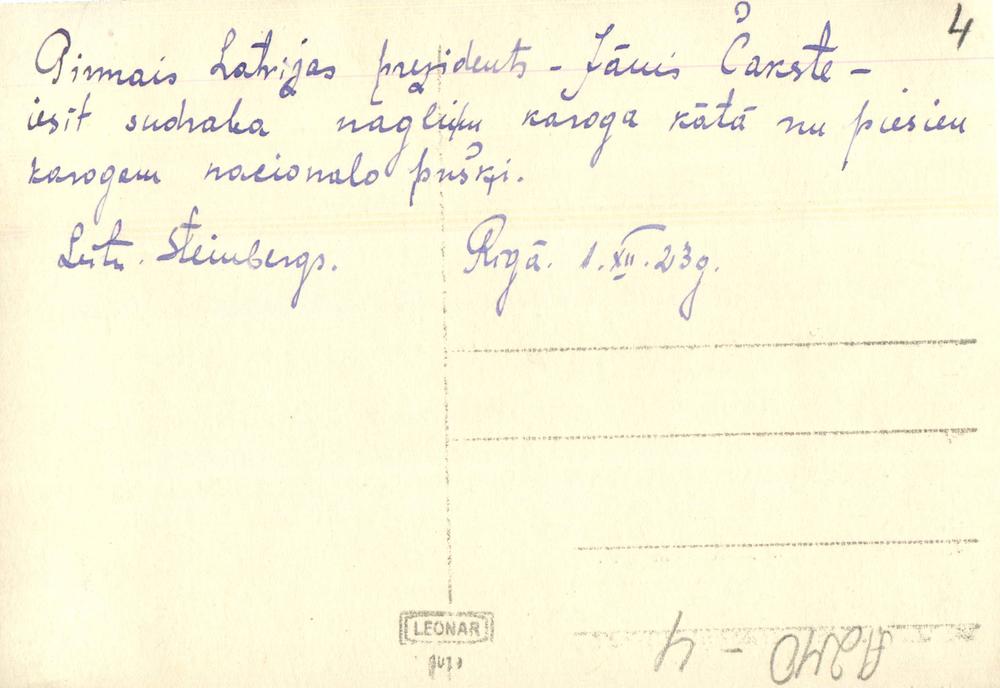 4
Pirmais Latvijas prezidents - Jānis Čakste -
iesit sudraba nagliņu karoga kātā un piesien
karogam nacionalo pušķi.
Leitn. Šteinbergs. Rīgā. 1.XII.23g.
LEONAR
A240 - 4